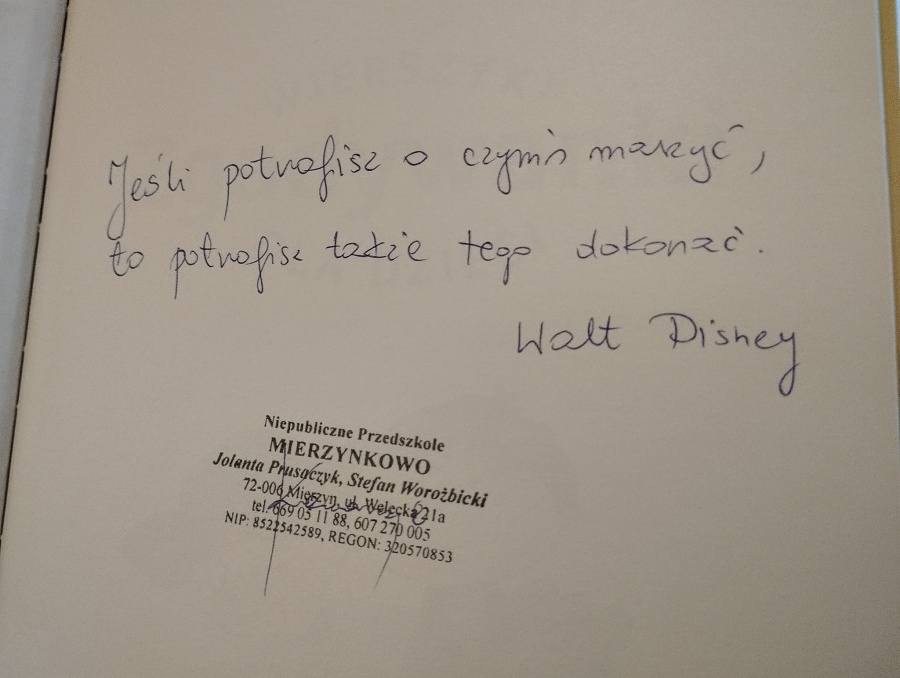 Jeśli potrafisz o czymś marzyć,
to potrafisz także tego dokonać.
Walt Disney
Niepubliczne Przedszkole
MIERZYNKOWO
Jolanta Prusaczyk, Stefan Worożbicki
72-006 Mierzyn, ul. Welecka 21a
tel. 669 05 11 88, 607 270 005
NIP: 8522542589, REGON: 320570853